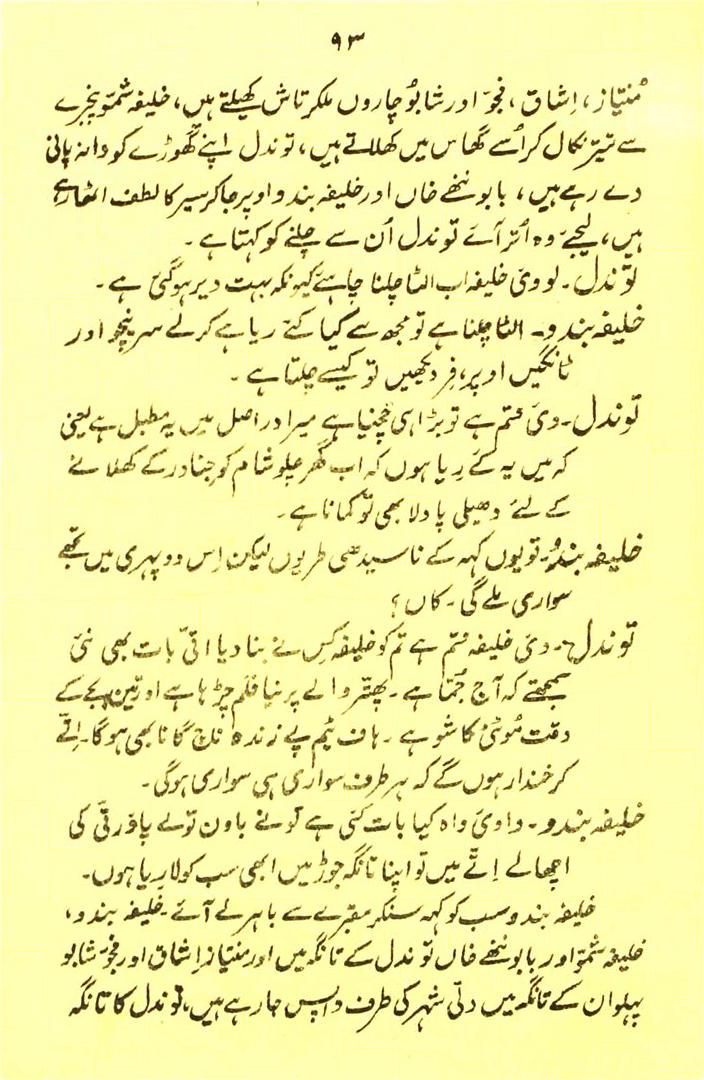 ۹۳
مُنتیاز، اِشاق، فجّو اور شابوُ چاروں ملکر تاش کھیلتے ہیں، خلیفہ شمّو پنجرے
سے تیتر نکال کر اُسے گھاس میں کھلاتے ہیں، توندل اپنے گھوڑے کو دانہ پانی
دے رہے ہیں، بابو ننّھے خاں اور خلیفہ بندو اوپر جا کر سیر کا لطف اٹھا رہے
ہیں، لیجئے وہ اُتر آئے توندل اُن سے چلنے کو کہتا ہے۔
توندل۔ لو وئ خلیفہ اب الٹا چلنا چاہئے کیونکہ بہت دیر ہوگئی ہے۔
خلیفہ بندو۔ الٹا چلنا ہے تو مجھ سے کیا کئے ریا ہے کرلے سر نیچو اور
ٹانگیں اوپر، فِر دیکھیں تو کیسے چلتا ہے۔
توندل۔ وئ ختم ہے تو بڑا ہی خچنیا ہے میرا دراصل میں یہ مطبل ہے یعنی
کہ میں یہ کئے رِیا ہوں کہ اب گھر چلو شام کو جنادر کے کھلانے
کے لئے دھیلی پا دلا بھی تو کمانا ہے۔
خلیفہ بندوُ۔ تو یوں کہہ کے نا سیدھی طریوں لیکن اِس دوپہری میں تجھے
سواری ملے گی۔ کاں؟
توندل۔ وئ خلیفہ ختم ہے تم کو خلیفہ کِس نے بنا دیا اتّی بات بھی نئی
سمجھتے کہ آج جُمّا ہے۔ پھتّر والے پر نیا فلم چڑہا ہے اور تین بجے کے
وقت مُوتی کا شو ہے۔ ہاف ٹیم پے زندہ ناچ گانا بھی ہوگا۔ اِتّے
کرخندار ہوں گے کہ ہر طرف سواری ہی سواری ہوگی۔
خلیفہ بندو۔ وا وئ واہ کیا بات کئی ہے تو نے باون تولے پاؤ رتّی کی
اچھا لے اِتّے میں تو اپنا تانگہ جوڑ میں ابھی سب کو لا ریا ہوں۔
خلیفہ بندو سب کو کہہ سنکر مقبرے سے باہر لے آئے۔ خلیفہ بندو،
خلیفہ شمّو اور بابو ننّھے خاں توندل کے تانگہ میں اور منتیاز اِشاق اور فجّو شابو
پہلوان کے تانگہ میں دلّی شہر کی طرف واپس جا رہے ہیں، توندل کا تانگہ